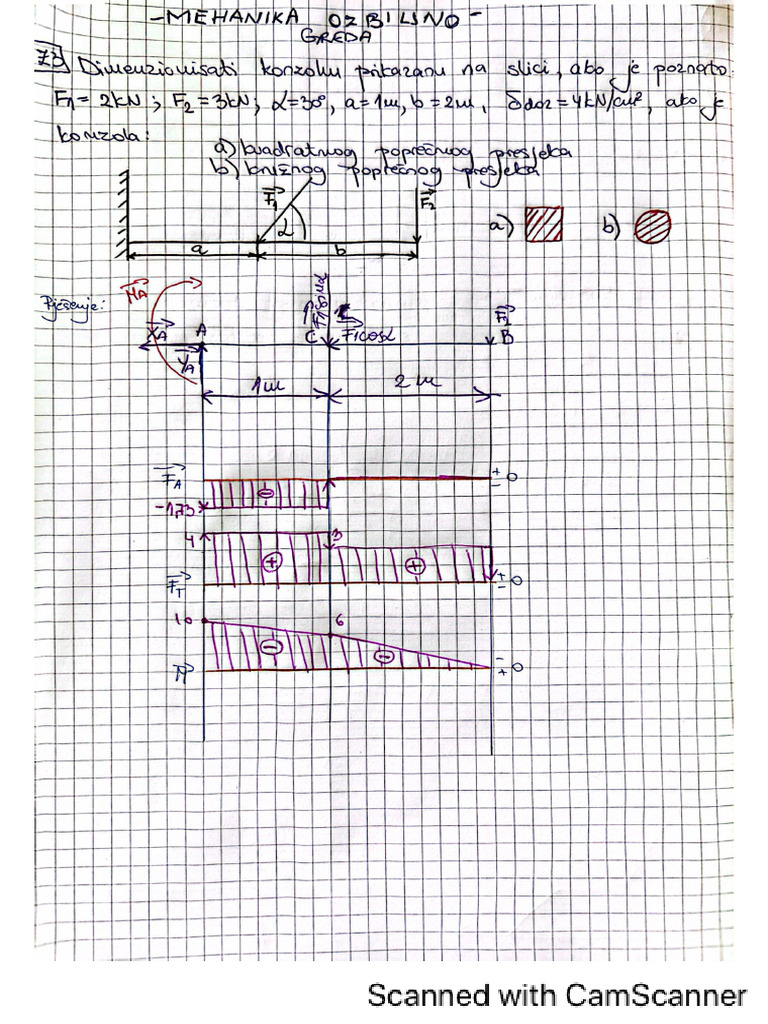 -MEHANIKA OZBILJNO-
GREDA
73. Dimenzionisati konzolu prikazanu na slici, ako je poznato:
F1 = 2kN; F2 = 3kN; α=30°, a=1m, b=2m, δdoz = 4kN/cm², ako je
konzola:
a) kvadratnog poprečnog presjeka
b) kružnog poprečnog presjeka
F1 F2
α a) b)
a b
Rješenje:
MA F1sinα F2
XA A C F1cosα B
YA
1m 2m
FA + 0 -
-1,73 ⊖
4 3
⊕ ⊕
FT + 0 -
10 6
⊖ ⊖
M - 0 +
Scanned with CamScanner